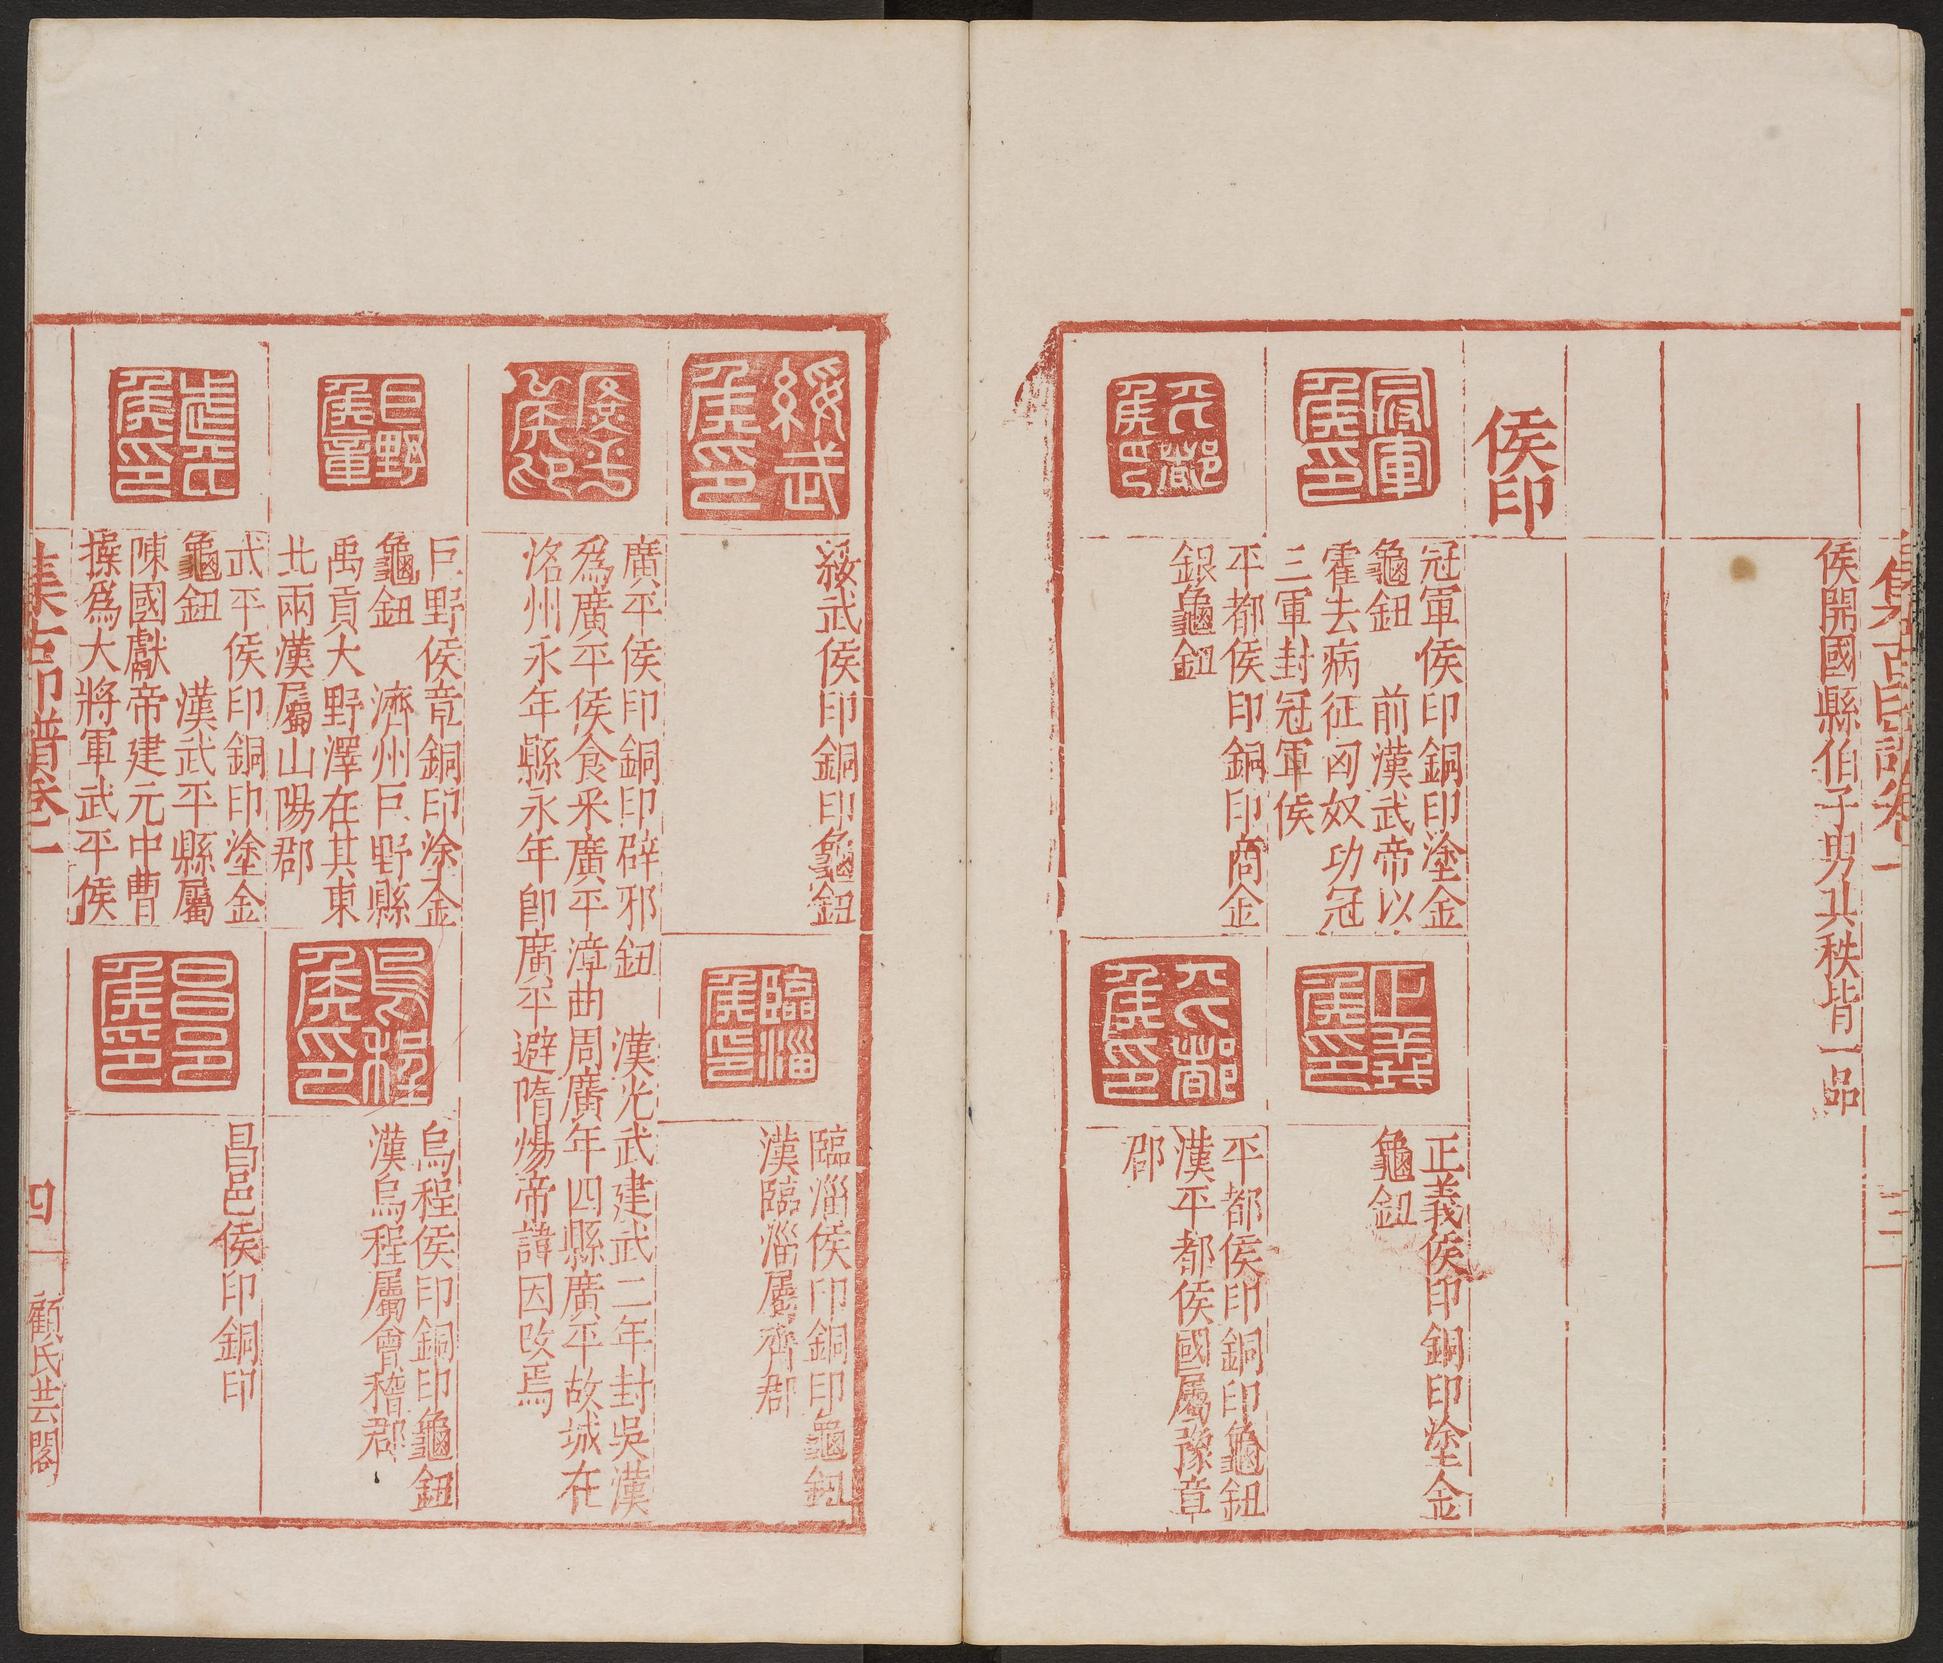 集古印譜卷一
三
侯開國縣伯子男其秩皆一品
侯印
冠軍侯印
冠軍侯印銅印塗金
龜鈕 前漢武帝以
霍去病征匈奴功冠
三軍封冠軍侯
正義侯印
正義侯印銅印塗金
龜鈕
平都侯印
平都侯印銅印商金
銀龜鈕
平都侯印
平都侯印銅印龜鈕
漢平都侯國屬豫章
郡
綏武侯印
綏武侯印銅印龜鈕
臨淄侯印
臨淄侯印銅印龜鈕
漢臨淄屬齊郡
廣平侯印
廣平侯印銅印辟邪鈕 漢光武建武二年封吳漢
爲廣平侯食釆廣平漳曲周廣年四縣廣平故城在
洺州永年縣永年卽廣平避隋煬帝諱因改焉
巨野侯章
巨野侯章銅印塗金
龜鈕 濟州巨野縣
禹貢大野澤在其東
北兩漢屬山陽郡
烏程侯印
烏程侯印銅印龜鈕
漢烏程屬會稽郡
武平侯印
武平侯印銅印塗金
龜鈕 漢武平縣屬
陳國獻帝建元中曹
操爲大將軍武平侯
昌邑侯印
昌邑侯印銅印
集古印譜卷一
四
顧氏芸閣